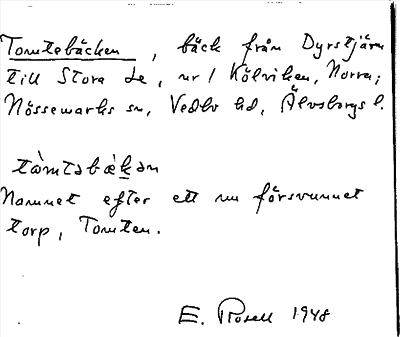 Tomtebäcken, bäck från Dyrstjärn
till Stora Le, nr 1 Kölviken, Norra;
Nössemarks sn, Vedbo hd, Älvsborgs l.
tàmtabǽkan
Namnet efter ett nu försvunnet
torp, Tomten.
E. Rosell 1948